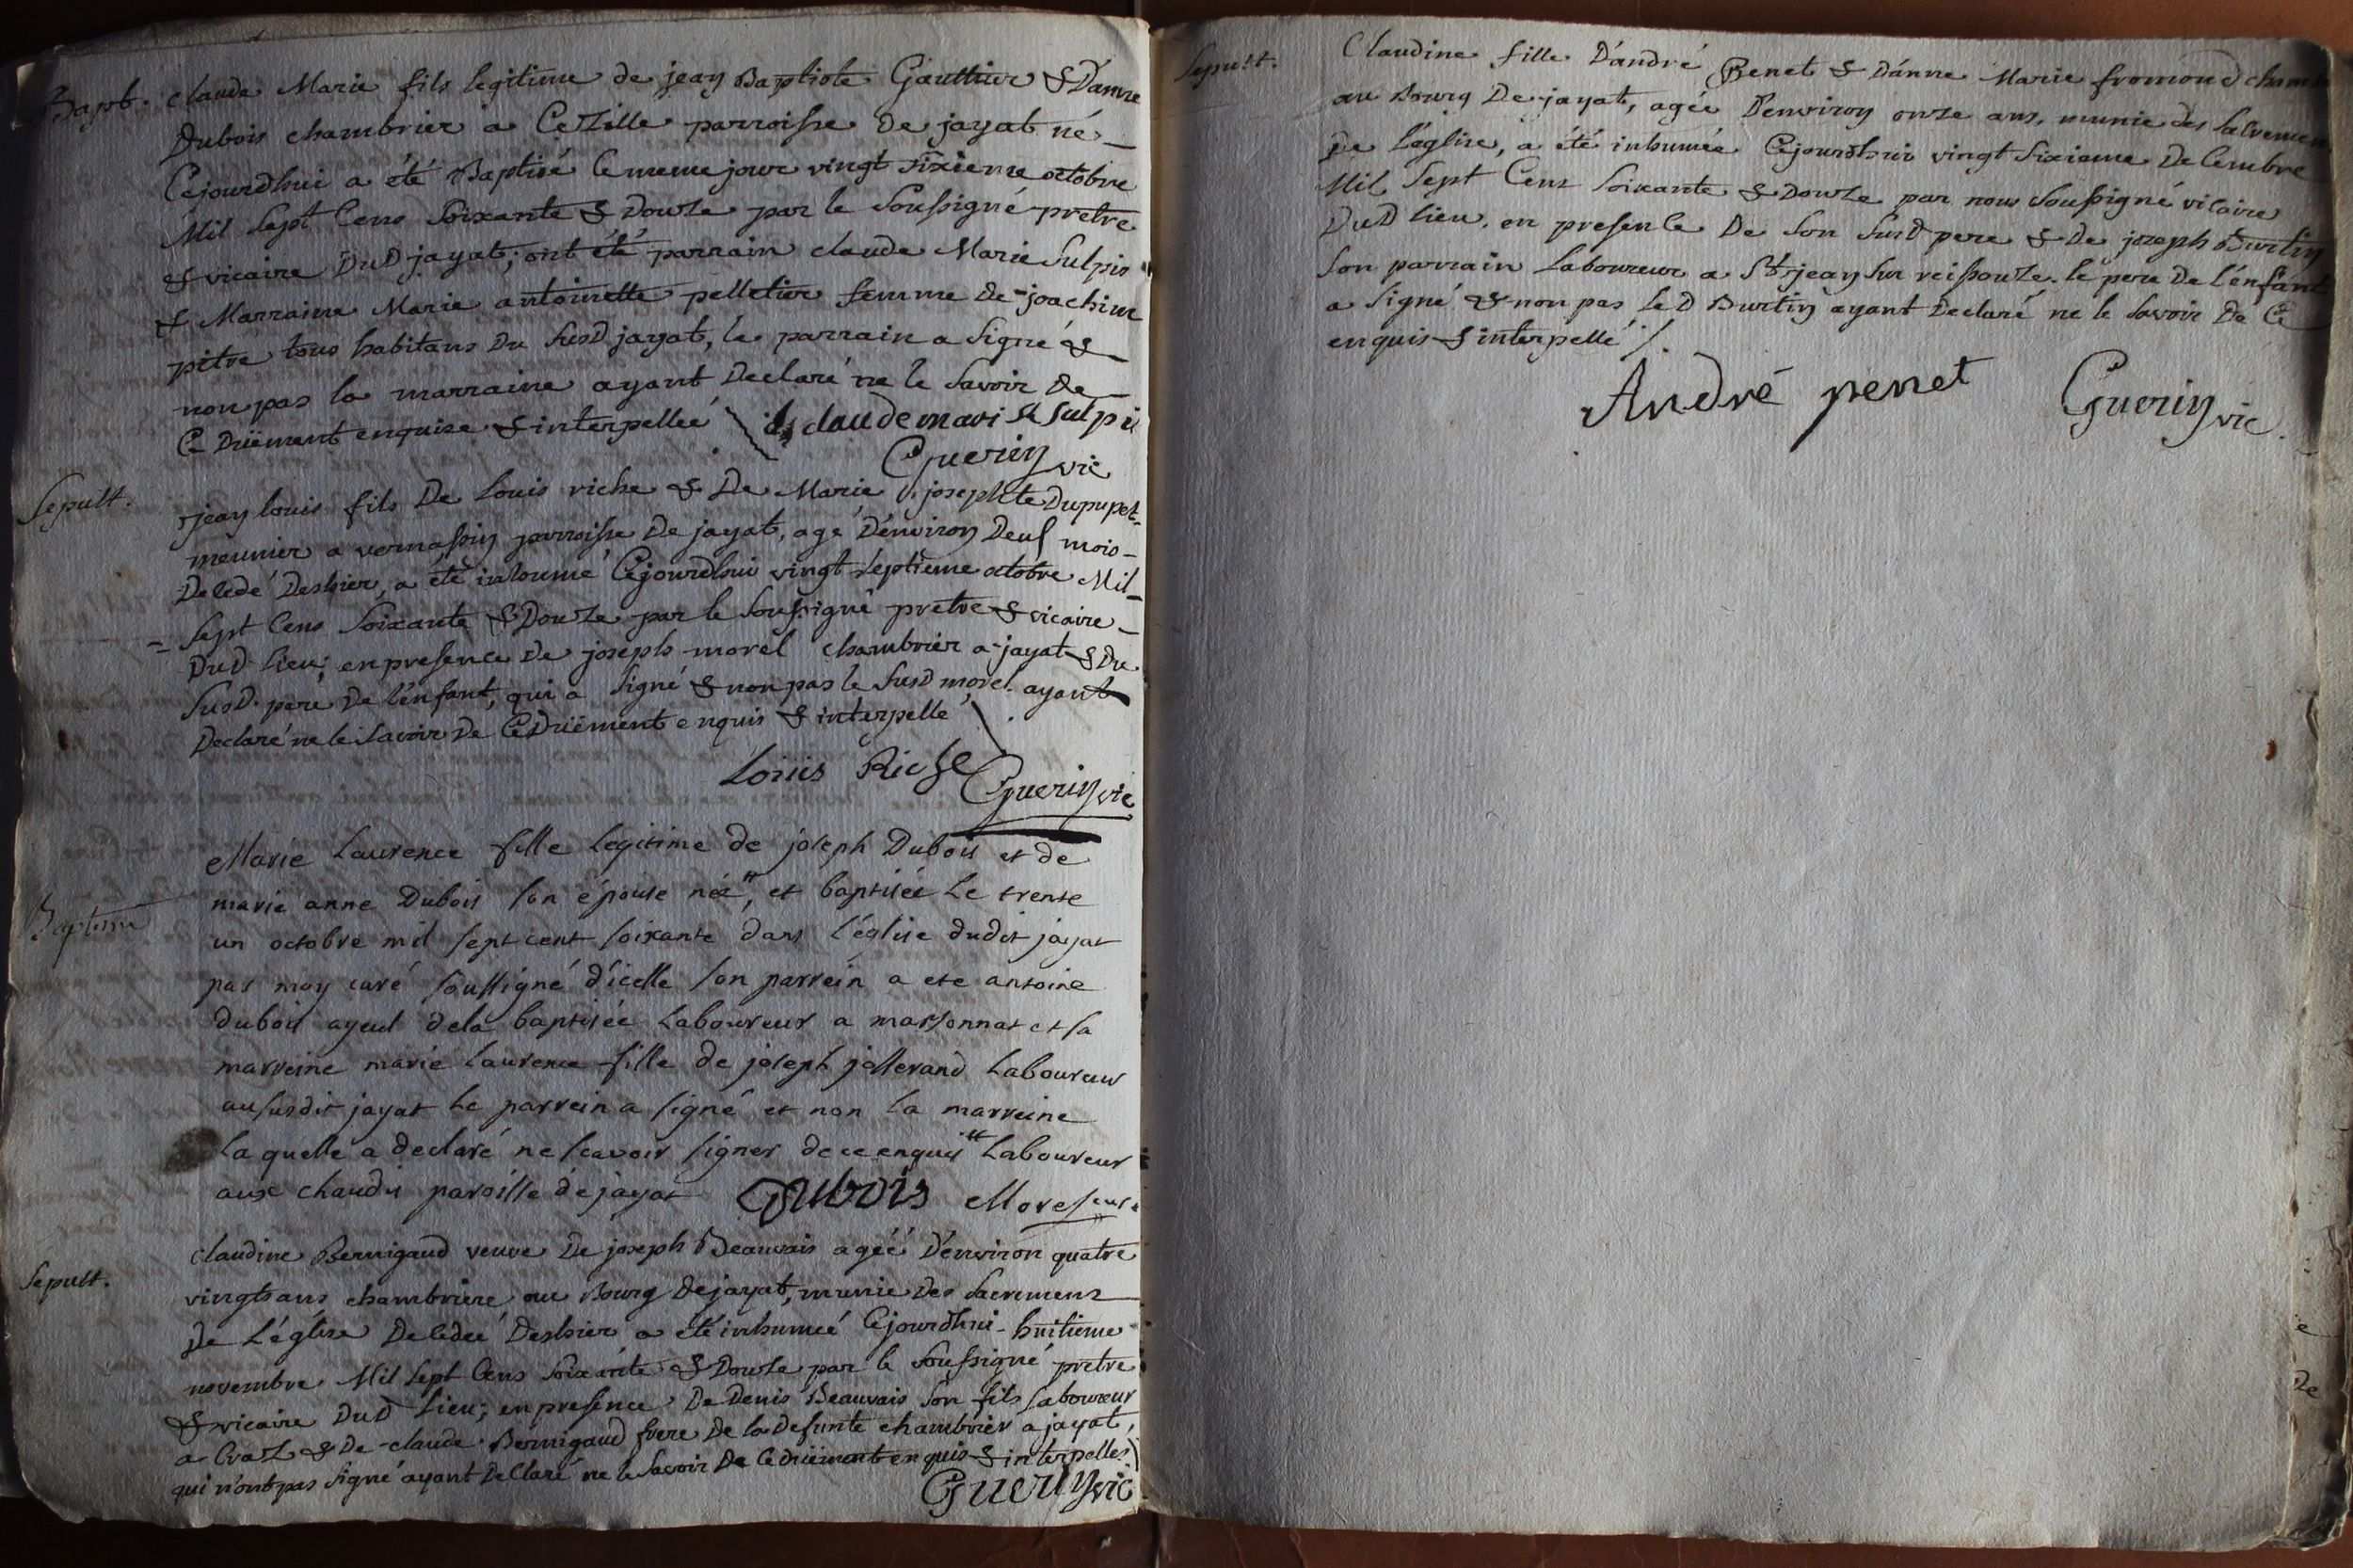 Bapt. claude Marie fils legitime de jean Baptiste Gauthier & D'anne
Dubois chambrier a Cezille parroisse de jayat né
Cejourdhui a été Baptisé le meme jour vingt sixieme octobre
Mil Sept Cens Soixante & Douze par le Soussigné pretre
& vicaire DuD jayat; ont été parrain claude Marie Sulpis
& Marraine Marie antoinette pelletier femme de joachim
pitre tous habitans Du SusD jayat, le parrain a Signé &
non pas la marraine ayant Declaré ne le Savoir De
Ce Düement enquise & interpellée claude mari Sulpi
Guerin vic
Sepult. jean louis fils De Louis riche & De Marie josephte Dupupet
meunier a vernassin parroisse De jayat, agé D'environ Deux mois
Decedé Deshier, a été inhumé Cejourdhui vingt Septieme octobre Mil
Sept Cens Soixante & Douze par le Soussigné pretre & vicaire
DuD lieu; en presence De joseph morel chambrier a jayat & Du
SusD. pere De l'enfant, qui a Signé & non pas le SusD morel ayant
Declaré ne le Savoir De Ce Düement enquis & interpellé
Louis Riche Guerin vic
Marie Laurence fille legitime de joseph Dubois et de
marie anne Dubois son épouse née, et baptisée Le trente
Baptême un octobre mil sept cent soixante dans l'église dudit jayat
par moy curé soussigné d'icelle son parrein a ete antoine
dubois ayeul dela baptisée Laboureur a marsonnat et sa
marreine marie Laurence fille de joseph josserand Laboureur
au susdit jayat Le parrein a signé et non la marreine
la quelle a declaré ne scavoir signer de ce enquis Laboureur
aux chaudis paroisse de jayat Dubois More curé
claudine Bernigaud veuve De joseph Beauvais agéé D'environ quatre
Sepult. vingts ans chambriere au Bourg De jayat, munie Des Sacremens
De L'église Decedeé Deshier a été inhumeé Cejourdhui huitieme
novembre Mil Sept Cens Soixante & Douze par le Soussigné pretre
& vicaire DuD Lieu; en presence De Denis Beauvais Son fils laboureur
a Craz & De claude Bernigaud frere De la Defunte chambrier a jayat,
qui n'ont pas Signé ayant Declaré ne le Savoir De Ce düement enquis & interpellés
Guerin vic
Sepult. Claudine fille D'andré Penet & D'anne Marie fromond
au Bourg De jayat, agée D'environ onze ans, munie des Sacremen
De l'église, a été inhumée Cejourdhui vingt Sixieme Decembre
Mil Sept Cens Soixante & Douze par nous Soussigné vicaire
DuD lieu, en presence De Son SusD pere & De joseph Burtin
Son parrain Laboureur a St jean Sur reissouze. le pere De l'enfant
a Signé & non pas LeD Burtin ayant Declaré ne le Savoir De Ce
enquis & interpellé
André penet Guerin vic.